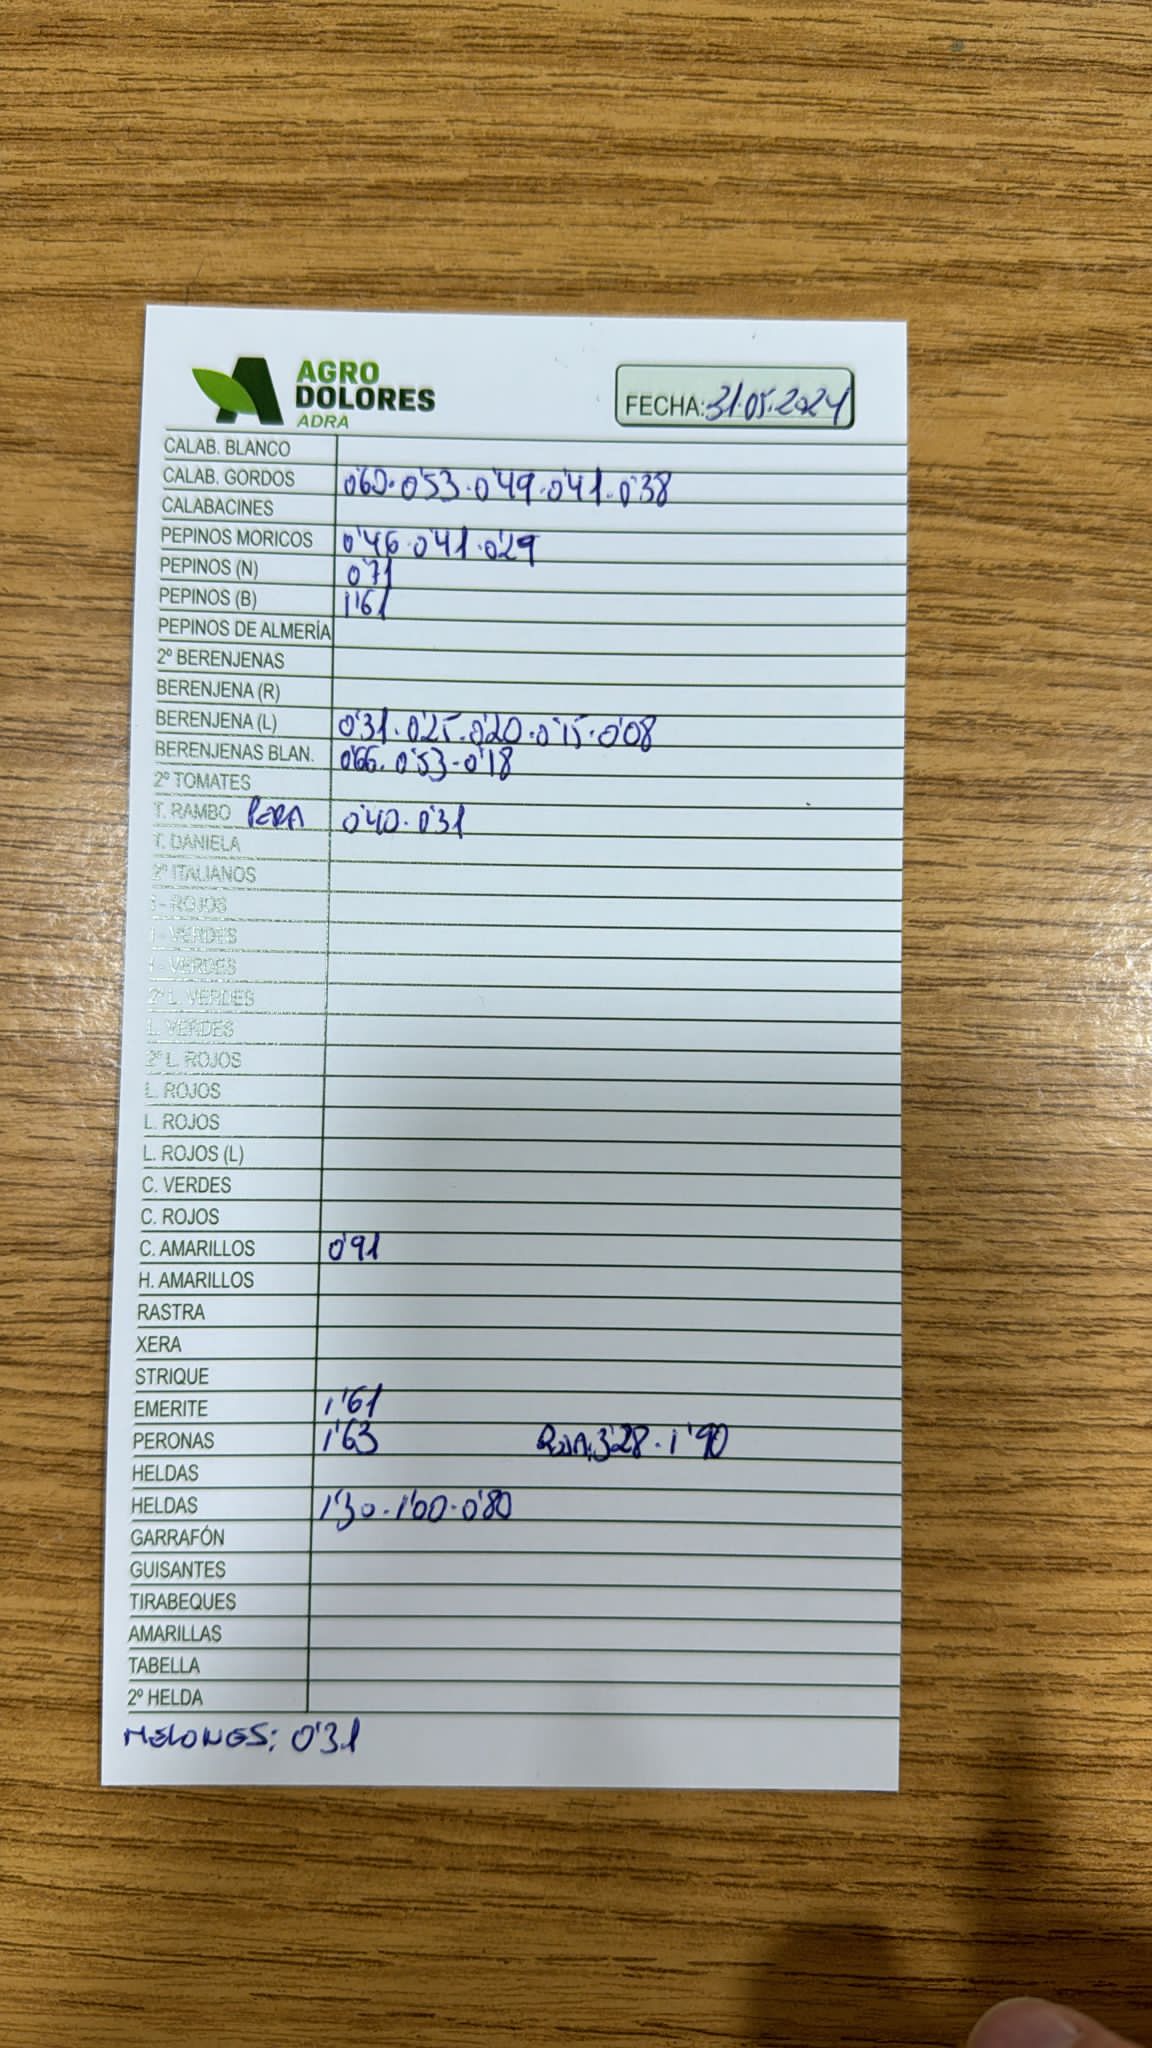 AGRO
DOLORES
ADRA
FECHA: 31.05.2024
CALAB. BLANCO
CALAB. GORDOS 0'60.0'53.0'49.0'41.0'38
CALABACINES
PEPINOS MORICOS 0'46.0'41.0'29
PEPINOS (N) 0'71
PEPINOS (B) 1'61
PEPINOS DE ALMERÍA
2º BERENJENAS
BERENJENA (R)
BERENJENA (L) 0'31.0'25.0'20.0'15.0'08
BERENJENAS BLAN. 0'66.0'53.0'18
2º TOMATES
T. RAMBO PERA 0'40.0'31
T. DANIELA
2º ITALIANOS
I - ROJOS
I - VERDES
I - VERDES
2º L. VERDES
L. VERDES
2º L. ROJOS
L. ROJOS
L. ROJOS
L. ROJOS (L)
C. VERDES
C. ROJOS
C. AMARILLOS 0'91
H. AMARILLOS
RASTRA
XERA
STRIQUE
EMERITE 1'61
PERONAS 1'63 ROJA: 3'28.1'90
HELDAS
HELDAS 1'30.1'00.0'80
GARRAFÓN
GUISANTES
TIRABEQUES
AMARILLAS
TABELLA
2º HELDA
MELONES: 0'31